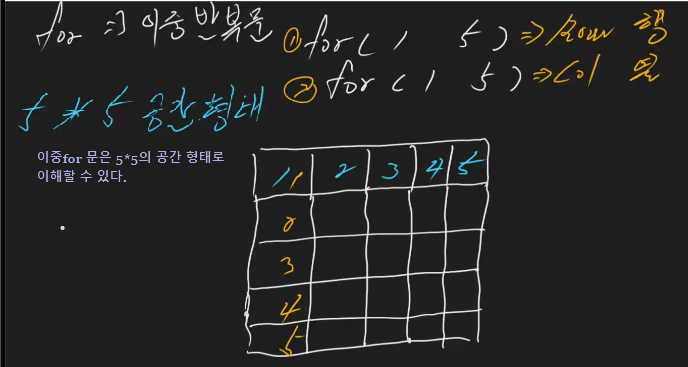 for => 이중 반복문
① for ( 1 5 ) => Row 행
② for ( 1 5 ) => Col 열
5 * 5 공간 형태
이중for 문은 5*5의 공간 형태로
이해할 수 있다.
1 1 2 3 4 5
2
3
4
5